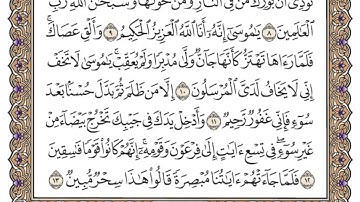 نُودِيَ أَنۢ بُورِكَ مَن فِي ٱلنَّارِ وَمَنۡ حَوۡلَهَا وَسُبۡحَٰنَ ٱللَّهِ رَبِّ
ٱلۡعَٰلَمِينَ ٨ يَٰمُوسَىٰٓ إِنَّهُۥٓ أَنَا ٱللَّهُ ٱلۡعَزِيزُ ٱلۡحَكِيمُ ٩ وَأَلۡقِ عَصَاكَۚ
فَلَمَّا رَءَاهَا تَهۡتَزُّ كَأَنَّهَا جَآنّٞ وَلَّىٰ مُدۡبِرٗا وَلَمۡ يُعَقِّبۡۚ يَٰمُوسَىٰ لَا تَخَفۡ
إِنِّي لَا يَخَافُ لَدَيَّ ٱلۡمُرۡسَلُونَ ١٠ إِلَّا مَن ظَلَمَ ثُمَّ بَدَّلَ حُسۡنَۢا بَعۡدَ
سُوٓءٖ فَإِنِّي غَفُورٞ رَّحِيمٞ ١١ وَأَدۡخِلۡ يَدَكَ فِي جَيۡبِكَ تَخۡرُجۡ بَيۡضَآءَ مِنۡ
غَيۡرِ سُوٓءٖۖ فِي تِسۡعِ ءَايَٰتٍ إِلَىٰ فِرۡعَوۡنَ وَقَوۡمِهِۦٓۚ إِنَّهُمۡ كَانُواْ قَوۡمٗا فَٰسِقِينَ
١٢ فَلَمَّا جَآءَتۡهُمۡ ءَايَٰتُنَا مُبۡصِرَةٗ قَالُواْ هَٰذَا سِحۡرٞ مُّبِينٞ ١٣